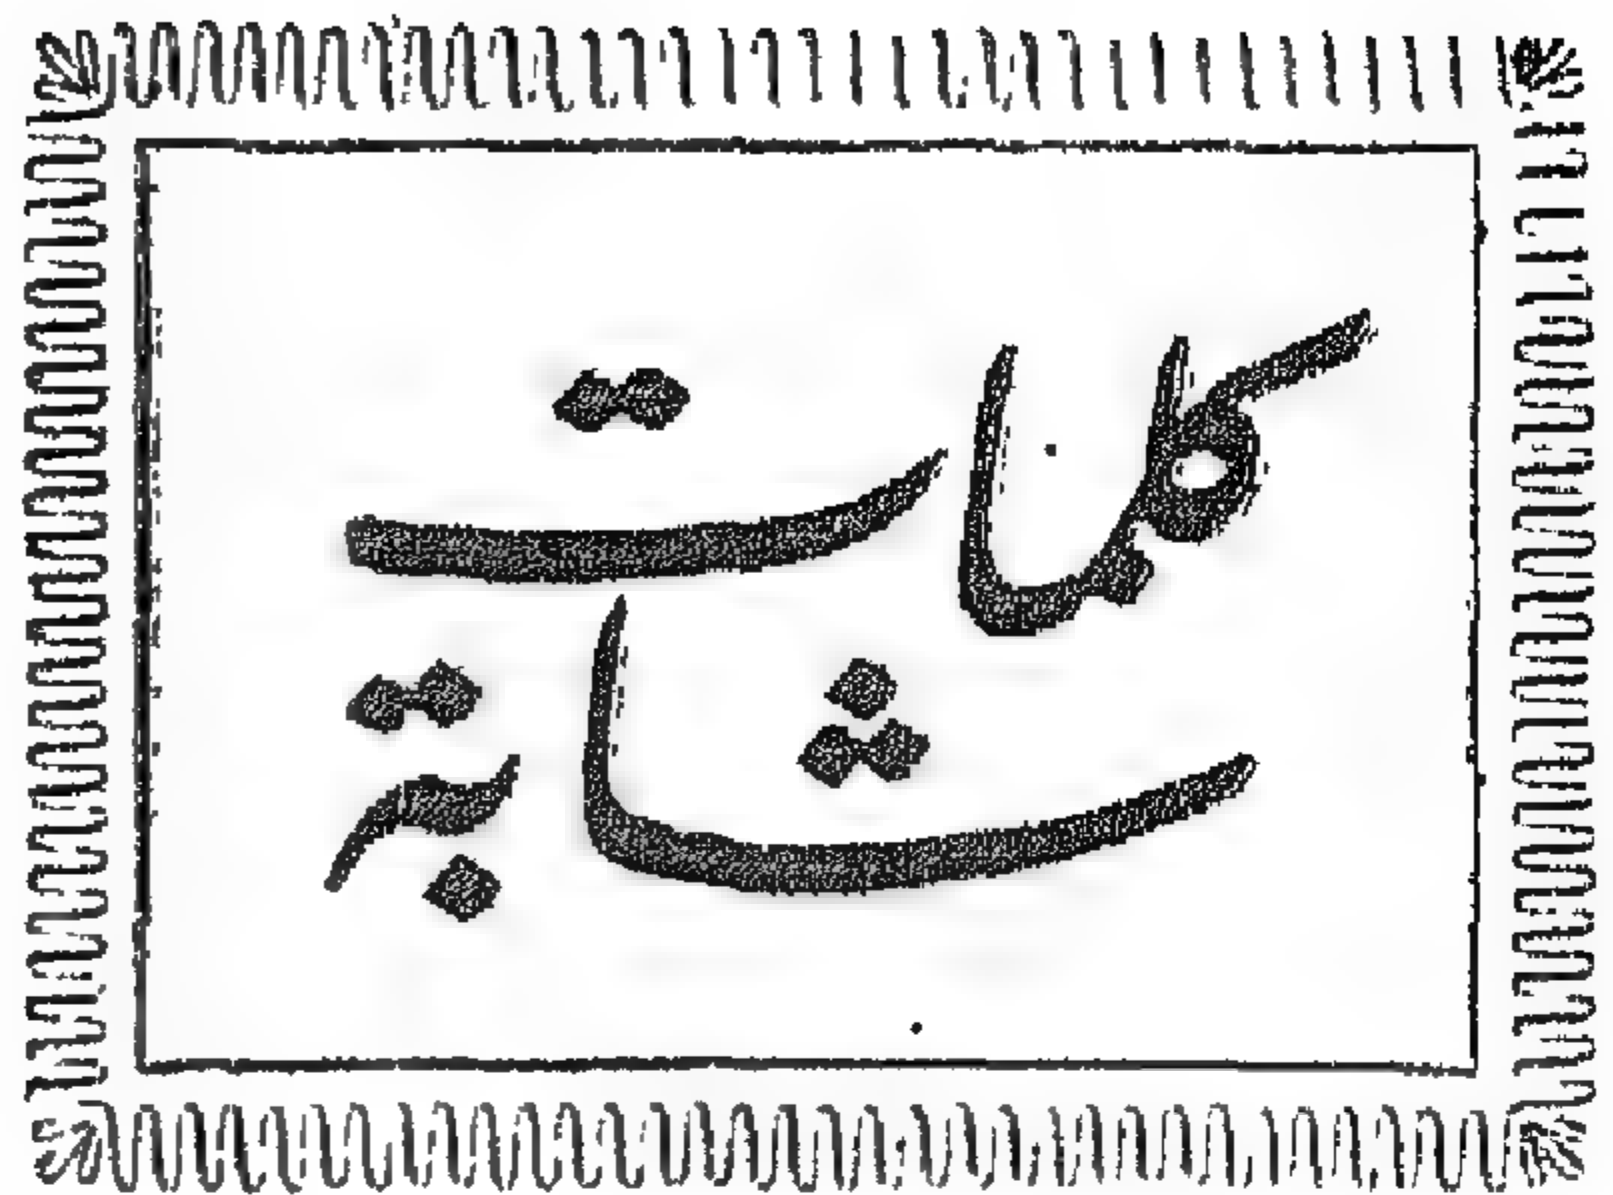 کلمات
ثابتہ